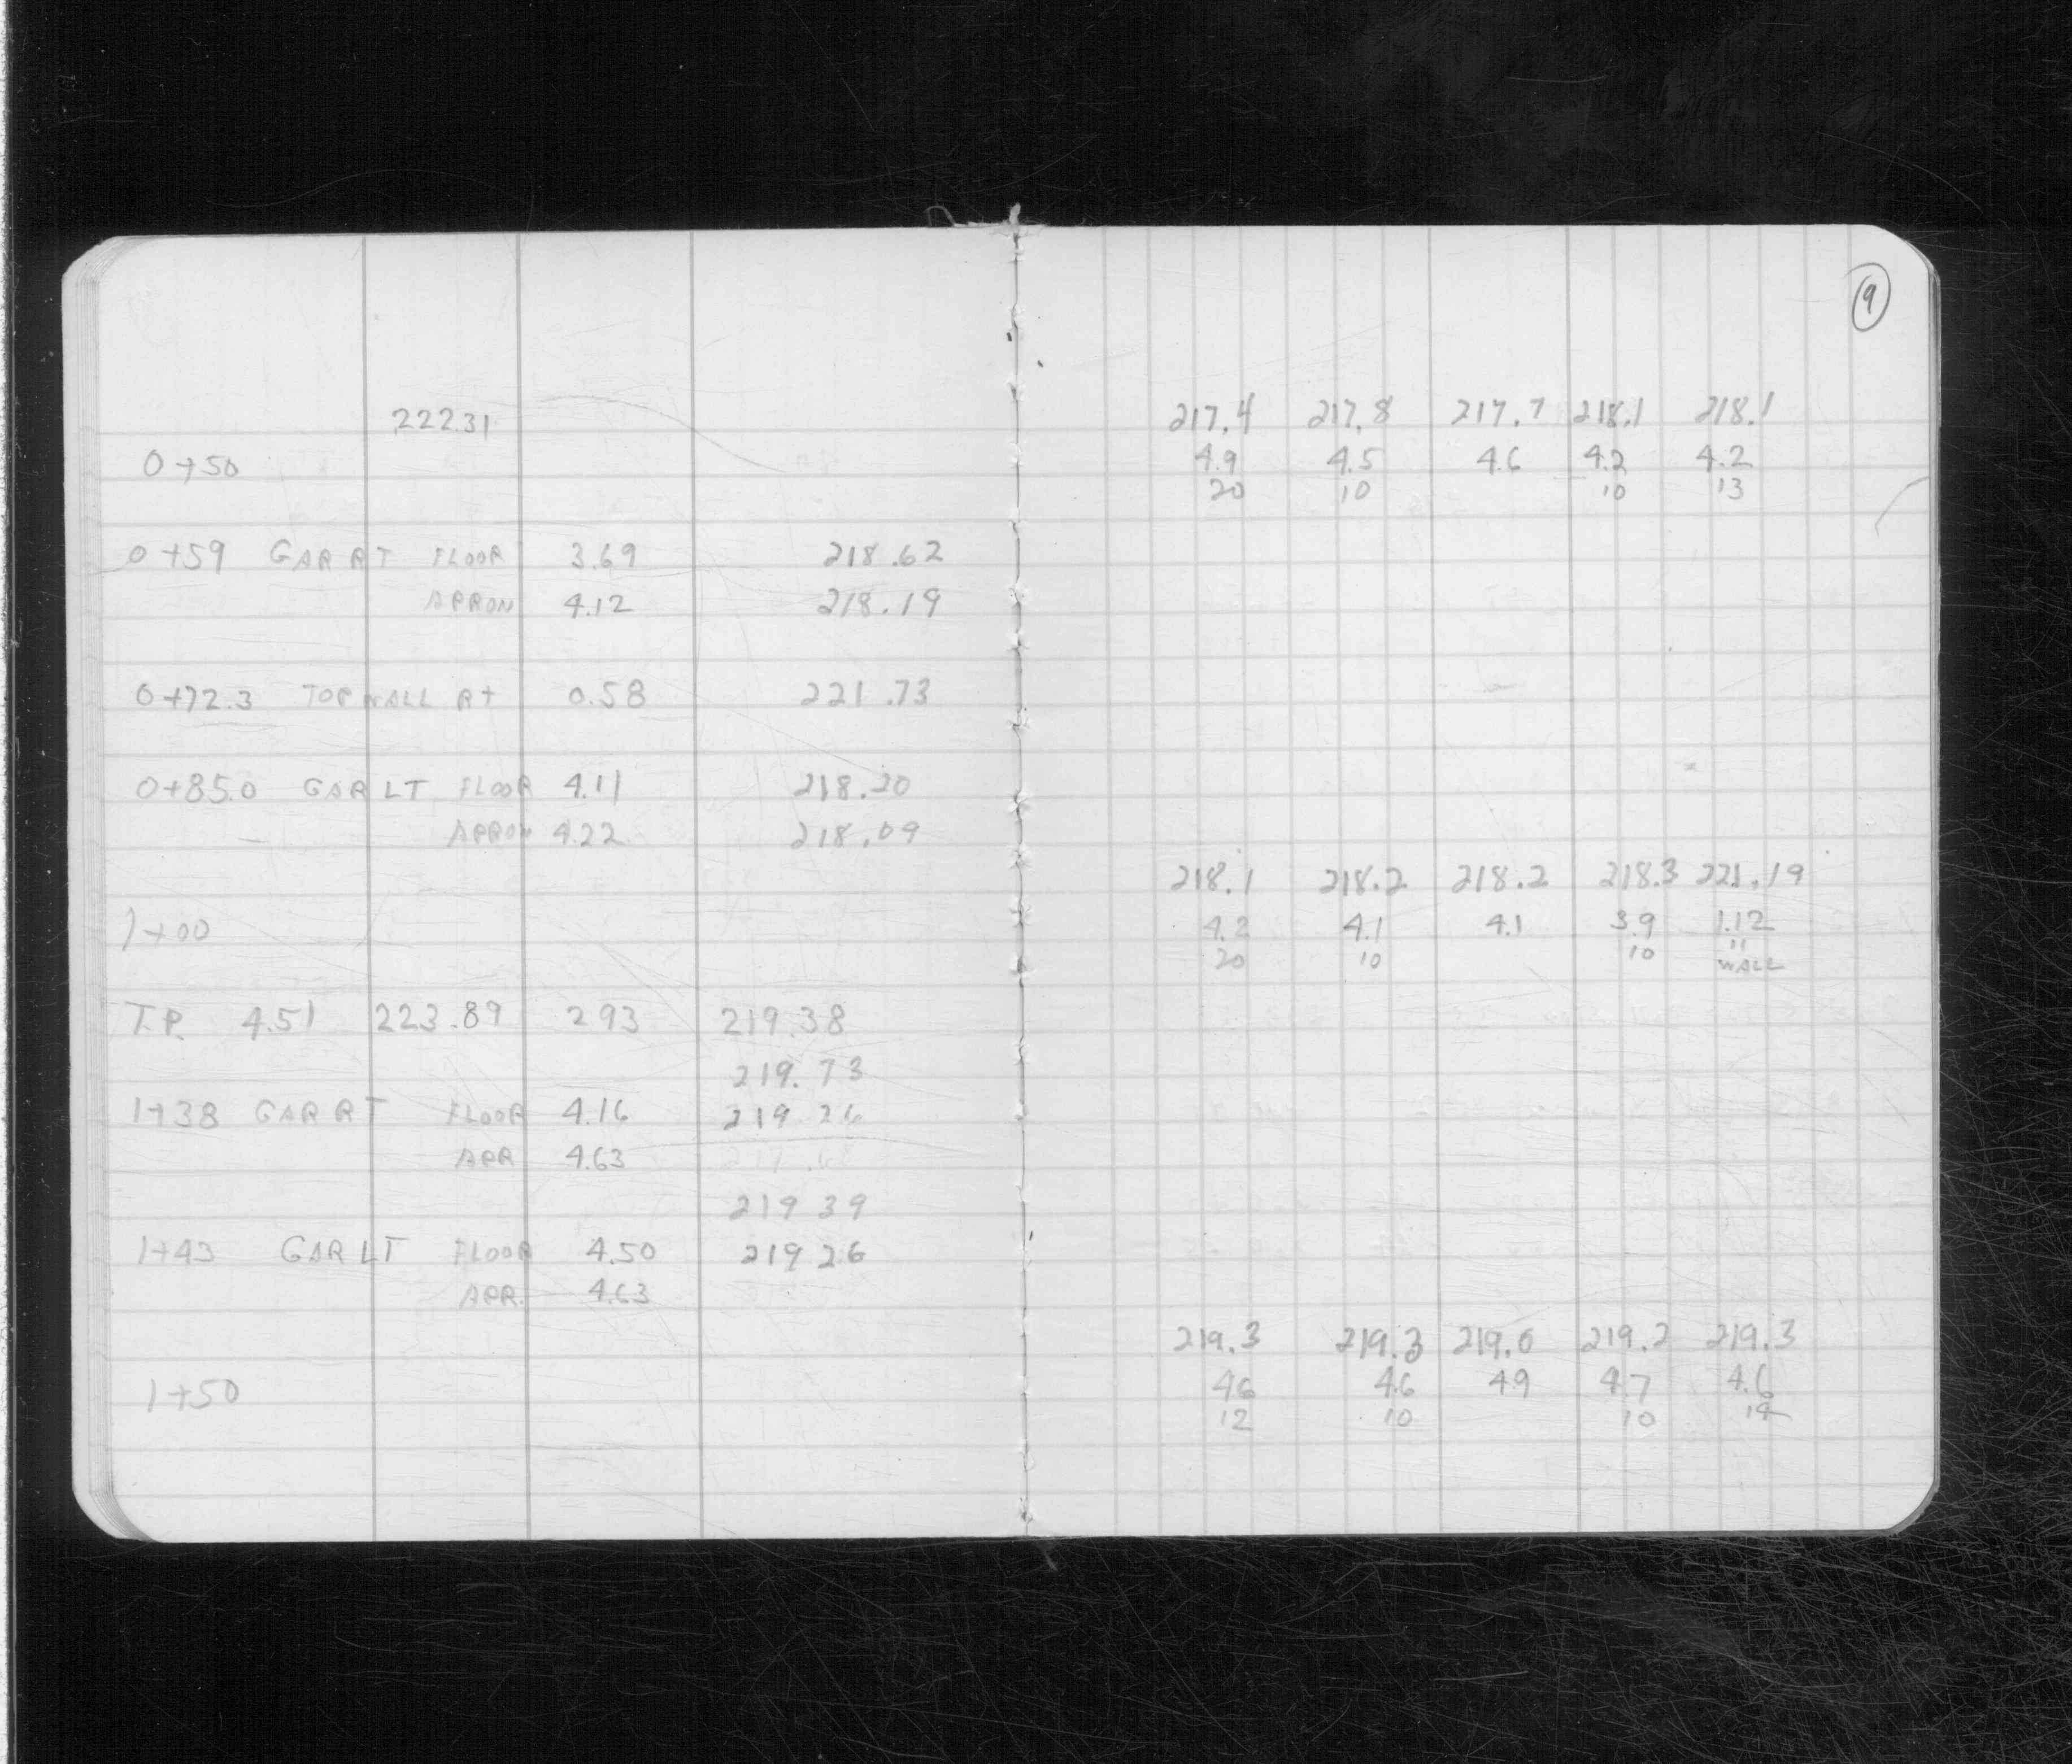 9
222.31
0+50
0+59 GAR RT FLOOR 3.69 218.62
APRON 4.12 218.19
0+72.3 TOP WALL RT 0.58 221.73
0+85.0 GAR LT FLOOR 4.11 218.20
APRON 4.22 218.09
1+00
T.P. 4.51 223.89 2.93 219.38
219.73
1+38 GAR RT FLOOR 4.16 219.26
APR 4.63
219 39
1+43 GAR LT FLOOR 4.50 219 26
APR. 4.63
1+50
217.4 217.8 217.7 218.1 218.1
4.9 4.5 4.6 4.2 4.2
20 10 10 13
218.1 218.2 218.2 218.3 221.19
4.2 4.1 4.1 3.9 1.12
20 10 10 11
WALL
219.3 219.3 219.0 219.2 219.3
4.6 4.6 4.9 4.7 4.6
12 10 10